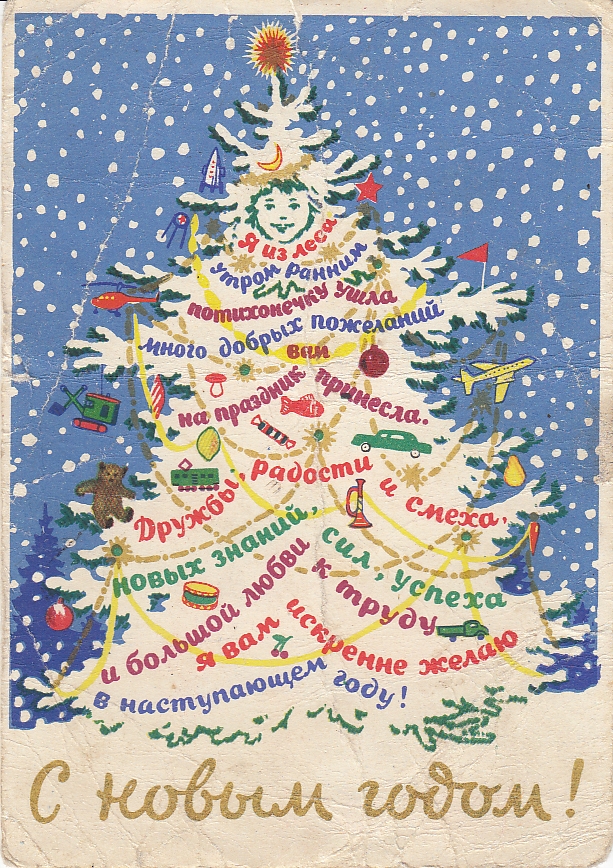 Я из леса
утром ранним
потихонечку ушла
много добрых пожеланий
вам
на праздник принесла.
Дружбы, радости и смеха,
новых знаний, сил, успеха
и большой любви к труду
я вам искренне желаю
в наступающем году!
С новым годом!